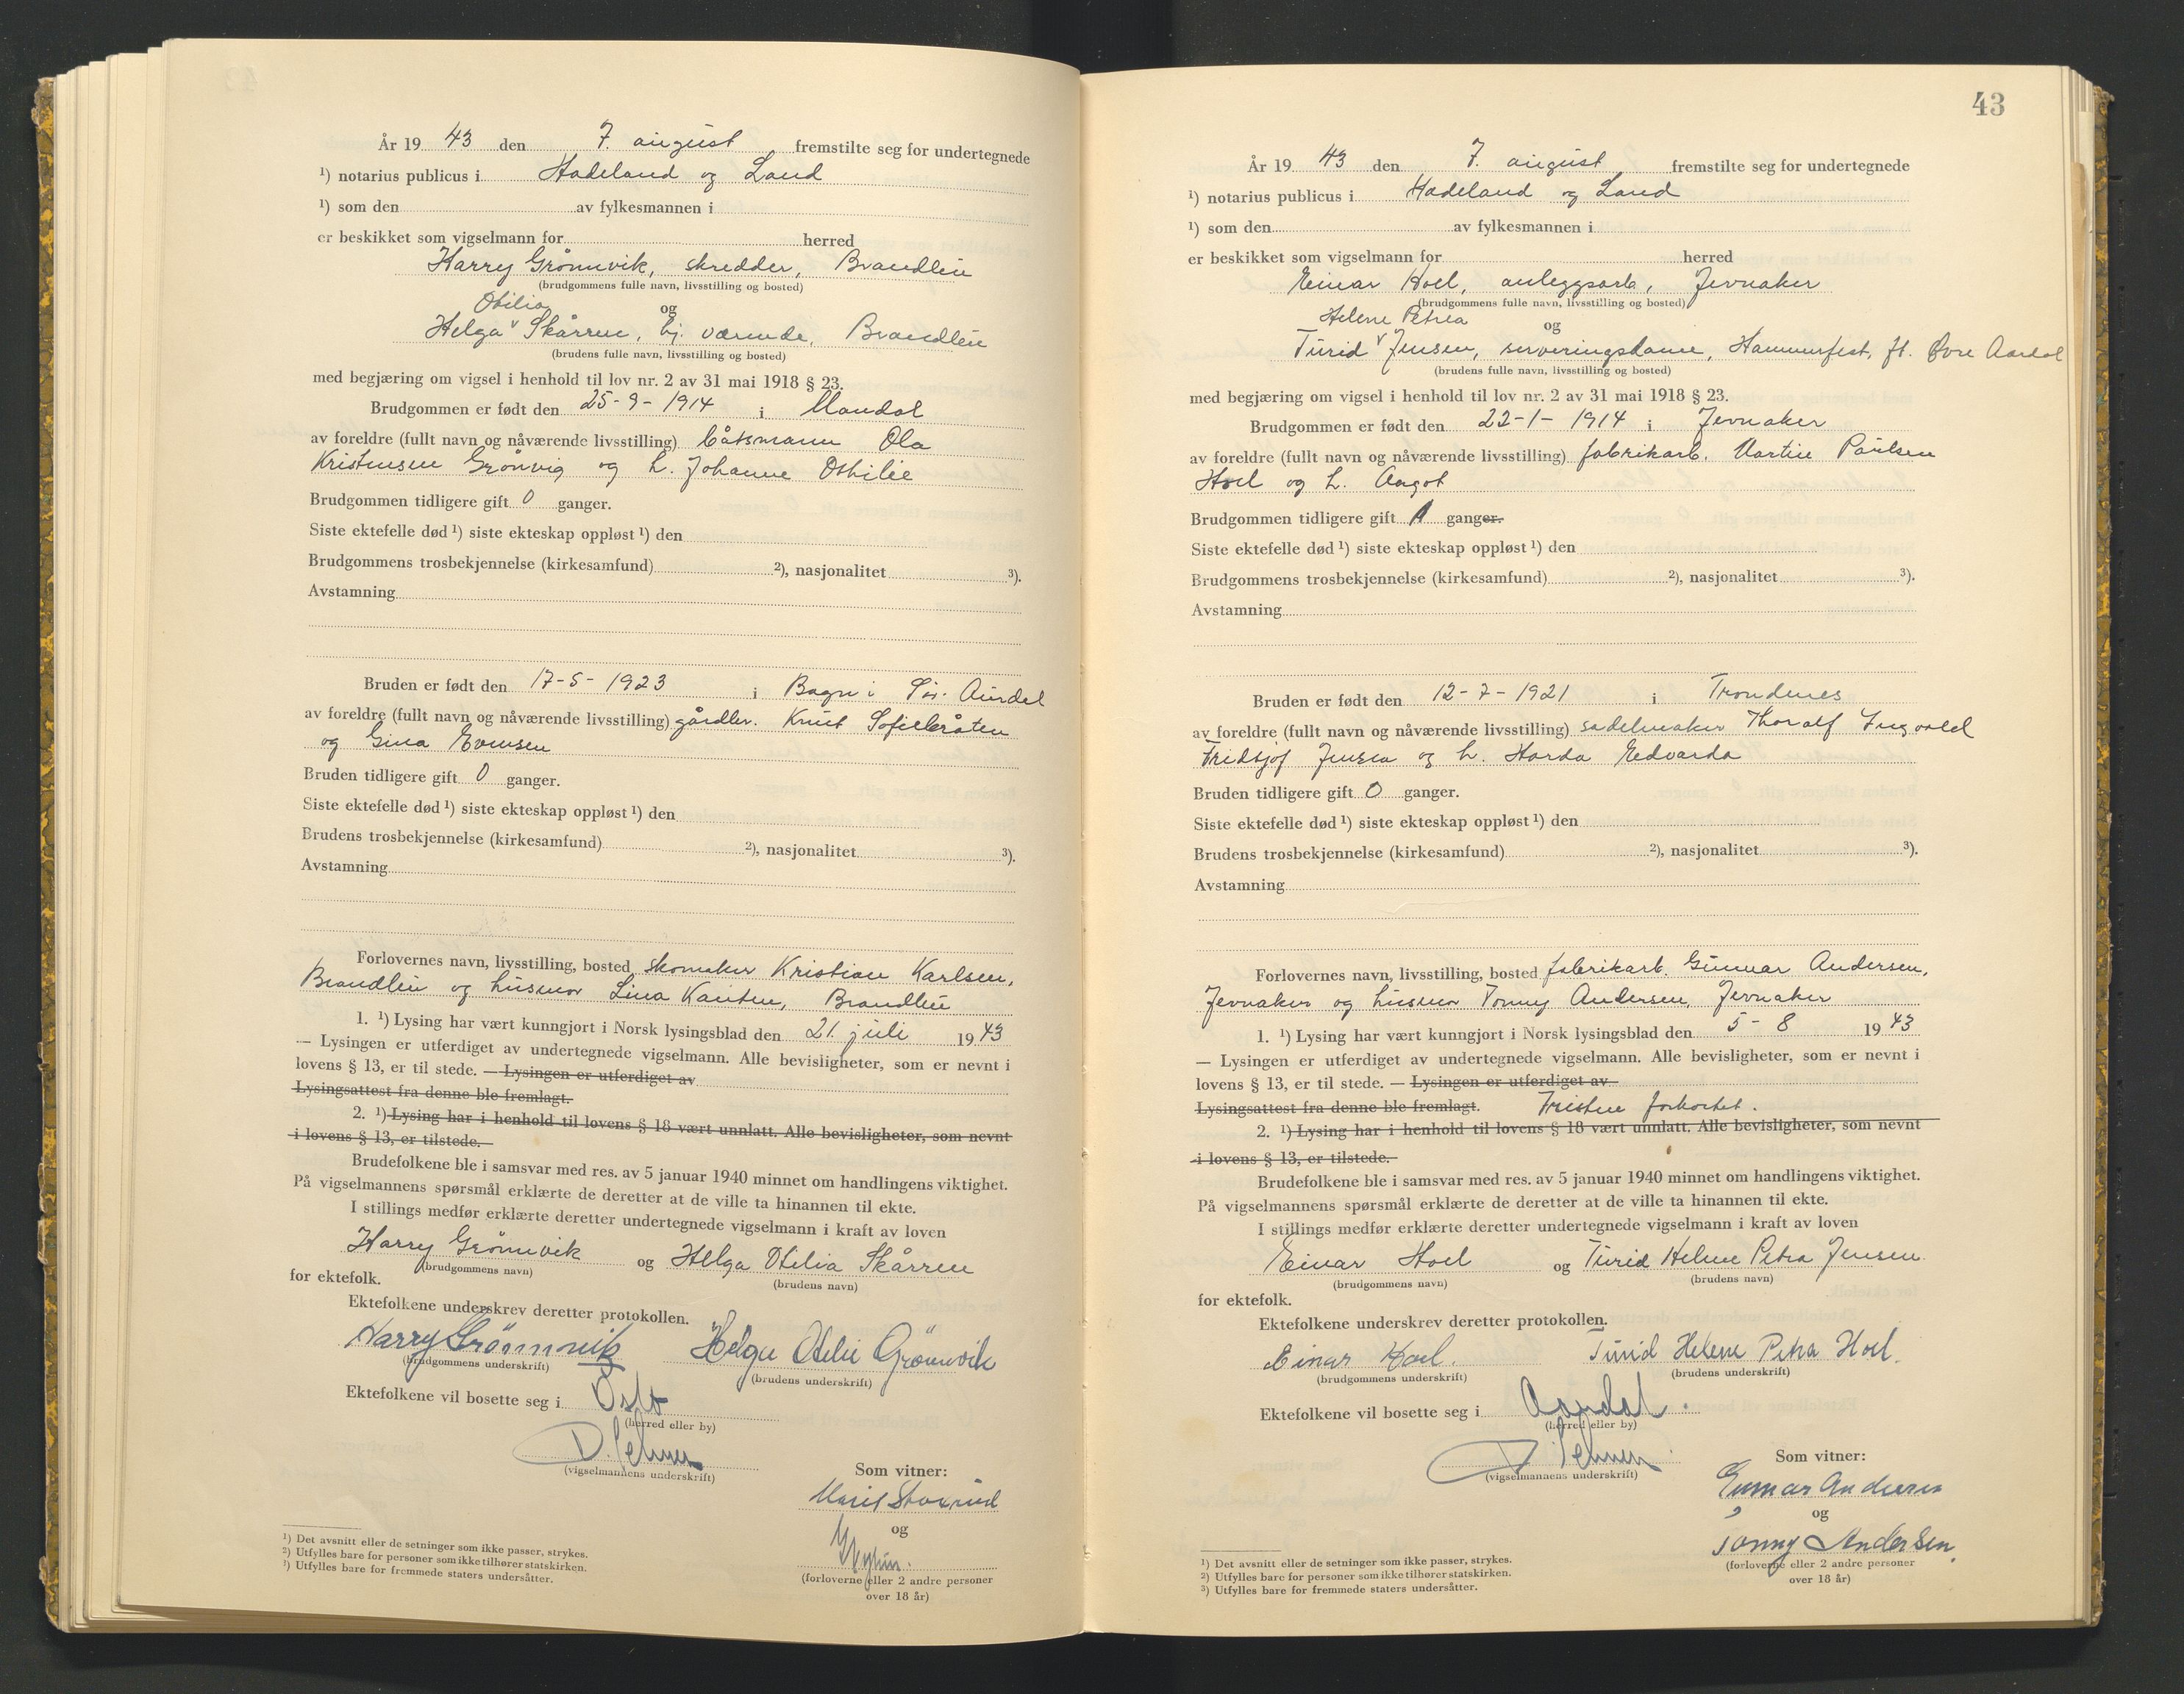 År 19 43 den 7. august fremstilte seg for undertegnede
¹) notarius publicus i Hadeland og Land
¹) som den av fylkesmannen i
er beskikket som vigselmann for herred
Harry Grönnvik, skredder, Brandbu
(brudgommens fulle navn, livsstilling og bosted)
Otilia og
Helga ᵛ Skårren, hj. værende, Brandbu
(brudens fulle navn, livsstilling og bosted)
med begjæring om vigsel i henhold til lov nr. 2 av 31 mai 1918 § 23.
Brudgommen er født den 25-9-1914 i Mandal
av foreldre (fullt navn og nåværende livsstilling) båtsmann Ola
Kristensen Grönvig og h. Johanne Othilie
Brudgommen tidligere gift 0 ganger.
Siste ektefelle død ¹) siste ekteskap oppløst ¹) den
Brudgommens trosbekjennelse (kirkesamfund) ²), nasjonalitet ³).
Avstamning
Bruden er født den 17-5-1923 i Bagn i Sör-Aurdal
av foreldre (fullt navn og nåværende livsstilling) gårdbr. Knut Sofiebråten
og Gina Evensen
Bruden tidligere gift 0 ganger.
Siste ektefelle død ¹) siste ekteskap oppløst ¹) den
Brudens trosbekjennelse (kirkesamfund) ²), nasjonalitet ³).
Avstamning
Forlovernes navn, livsstilling, bosted skomaker Kristian Karlsen,
Brandbu og husmor Lina Brandbu
1. ¹) Lysing har vært kunngjort i Norsk lysingsblad den 21. juli 19 43
— Lysingen er utferdiget av undertegnede vigselmann. Alle bevisligheter, som er nevnt i
lovens § 13, er til stede. — Lysingen er utferdiget av
Lysingsattest fra denne ble fremlagt.
2. ¹) Lysing har i henhold til lovens § 18 vært unnlatt. Alle bevisligheter, som nevnt
i lovens § 13, er tilstede.
Brudefolkene ble i samsvar med res. av 5 januar 1940 minnet om handlingens viktighet.
På vigselmannens spørsmål erklærte de deretter at de ville ta hinannen til ekte.
I stillings medfør erklærte deretter undertegnede vigselmann i kraft av loven
Harry Grönnvik og Helga Otilia Skårren
(brudgommens navn) (brudens navn)
for ektefolk.
Ektefolkene underskrev deretter protokollen.
Harry Grönnvik Helga Otilie Grönnvik
(brudgommens underskrift) (brudens underskrift)
Ektefolkene vil bosette seg i Oslo
(herred eller by)
D.
(vigselmannens underskrift)
Som vitner:
Marit
og
(forloverne eller 2 andre personer
over 18 år)
¹) Det avsnitt eller de setninger som ikke passer, strykes.
²) Utfylles bare for personer som ikke tilhører statskirken.
³) Utfylles bare for fremmede staters undersåtter.
43
År 19 43 den 7. august fremstilte seg for undertegnede
¹) notarius publicus i Hadeland og Land
¹) som den av fylkesmannen i
er beskikket som vigselmann for herred
Einar Hoel, anleggsarb., Jevnaker
(brudgommens fulle navn, livsstilling og bosted)
Helene Petrea og
Turid ᵛ Jensen, serveringsdame, Hammerfest, ft. Övre Aardal
(brudens fulle navn, livsstilling og bosted)
med begjæring om vigsel i henhold til lov nr. 2 av 31 mai 1918 § 23.
Brudgommen er født den 22-1-1914 i Jevnaker
av foreldre (fullt navn og nåværende livsstilling) fabrikarb. Martin Paulsen
Hoel og h. Aagot
Brudgommen tidligere gift 1 ganger.
Siste ektefelle død ¹) siste ekteskap oppløst ¹) den
Brudgommens trosbekjennelse (kirkesamfund) ²), nasjonalitet ³).
Avstamning
Bruden er født den 12-7-1921 i Trondenes
av foreldre (fullt navn og nåværende livsstilling) sadelmaker Thoralf Ingvald
Fridtjof Jensen og h. Harda Edvarda
Bruden tidligere gift 0 ganger.
Siste ektefelle død ¹) siste ekteskap oppløst ¹) den
Brudens trosbekjennelse (kirkesamfund) ²), nasjonalitet ³).
Avstamning
Forlovernes navn, livsstilling, bosted fabrikarb. Gunnar Andersen,
Jevnaker og husmor Tonny Andersen, Jevnaker
1. ¹) Lysing har vært kunngjort i Norsk lysingsblad den 5-8 19 43
— Lysingen er utferdiget av undertegnede vigselmann. Alle bevisligheter, som er nevnt i
lovens § 13, er til stede. — Lysingen er utferdiget av
Lysingsattest fra denne ble fremlagt. Fristen forkortet.
2. ¹) Lysing har i henhold til lovens § 18 vært unnlatt. Alle bevisligheter, som nevnt
i lovens § 13, er tilstede.
Brudefolkene ble i samsvar med res. av 5 januar 1940 minnet om handlingens viktighet.
På vigselmannens spørsmål erklærte de deretter at de ville ta hinannen til ekte.
I stillings medfør erklærte deretter undertegnede vigselmann i kraft av loven
Einar Hoel og Turid Helene Petra Jensen
(brudgommens navn) (brudens navn)
for ektefolk.
Ektefolkene underskrev deretter protokollen.
Einar Hoel. Turid Helene Petra Hoel.
(brudgommens underskrift) (brudens underskrift)
Ektefolkene vil bosette seg i Aardal.
(herred eller by)
D.
(vigselmannens underskrift)
Som vitner:
Gunnar Andersen
og
Tonny Andersen.
(forloverne eller 2 andre personer
over 18 år)
¹) Det avsnitt eller de setninger som ikke passer, strykes.
²) Utfylles bare for personer som ikke tilhører statskirken.
³) Utfylles bare for fremmede staters undersåtter.